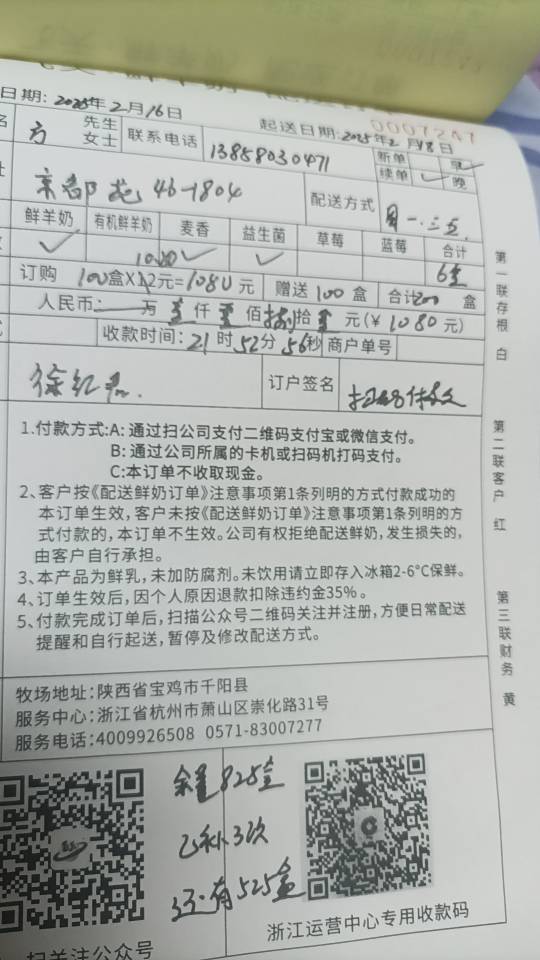 日期: 2025年2月16日
0007247
起送日期: 2025年2月18日
方 先生 女士 联系电话 13858030471 新单 早✓
续单 ✓ 晚
京都苑 46-1804 配送方式 周一.三.五
鲜羊奶 有机鲜羊奶 麦香 益生菌 草莓 蓝莓 合计
✓ ✓ ✓ 6盒
订购 100盒X 元=1080元 赠送100盒 合计200盒
人民币: 万 壹仟 佰 捌拾 元(¥1080元)
收款时间: 21时52分56秒 商户单号
徐红 订户签名 扫码付款
1.付款方式:A: 通过扫公司支付二维码支付宝或微信支付。
B: 通过公司所属的卡机或扫码机打码支付。
C:本订单不收取现金。
2、客户按《配送鲜奶订单》注意事项第1条列明的方式付款成功的
本订单生效，客户未按《配送鲜奶订单》注意事项第1条列明的方
式付款的，本订单不生效。公司有权拒绝配送鲜奶，发生损失的，
由客户自行承担。
3、本产品为鲜乳，未加防腐剂。未饮用请立即存入冰箱2-6°C保鲜。
4、订单生效后，因个人原因退款扣除违约金35%。
5、付款完成订单后，扫描公众号二维码关注并注册，方便日常配送
提醒和自行起送，暂停及修改配送方式。
牧场地址:陕西省宝鸡市千阳县
服务中心:浙江省杭州市萧山区崇化路31号
服务电话:4009926508 0571-83007277
余量825盒
已补3次
还有525盒
扫关注公众号
浙江运营中心专用收款码
第一联存根 白
第二联客户 红
第三联财务 黄